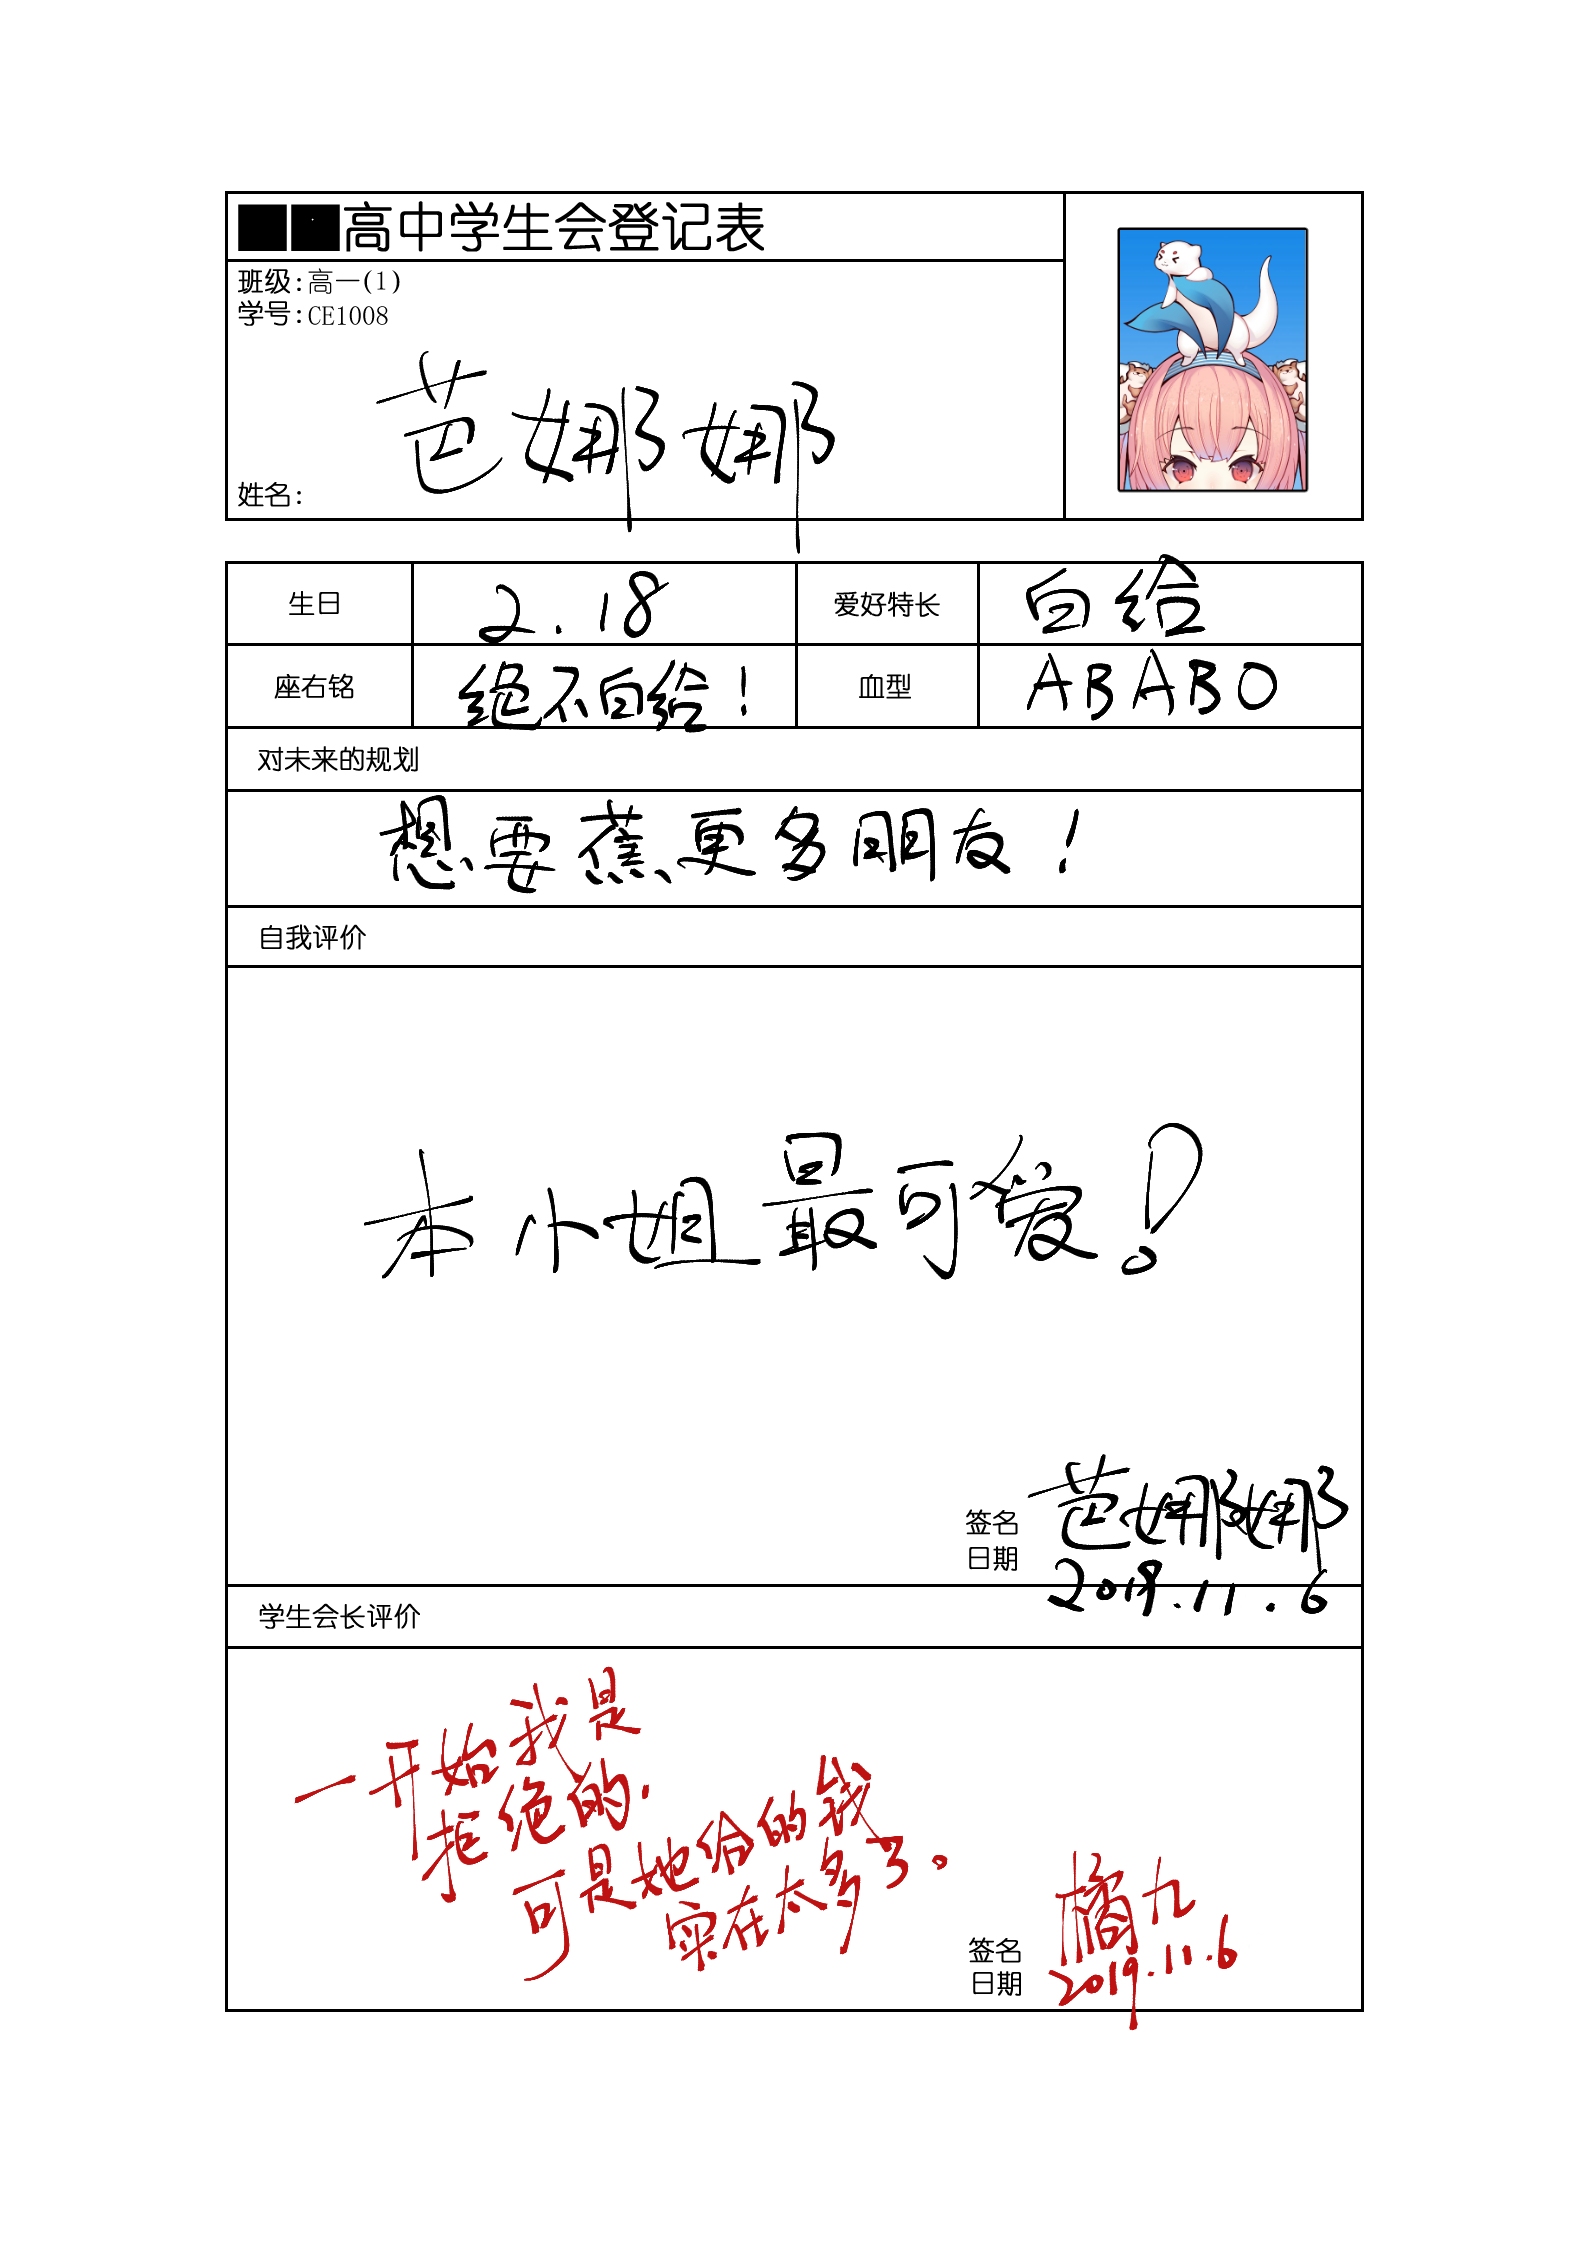 ■■高中学生会登记表
班级:高一(1)
学号:CE1008
姓名: 芭娜娜
生日 2.18 爱好特长 白给
座右铭 绝不白给! 血型 ABABO
对未来的规划
想要蕉更多朋友!
自我评价
本小姐最可爱!
签名 芭娜娜
日期 2019.11.6
学生会长评价
一开始我是
拒绝的.
可是她给的钱
实在太多了。
签名 橘九
日期 2019.11.6